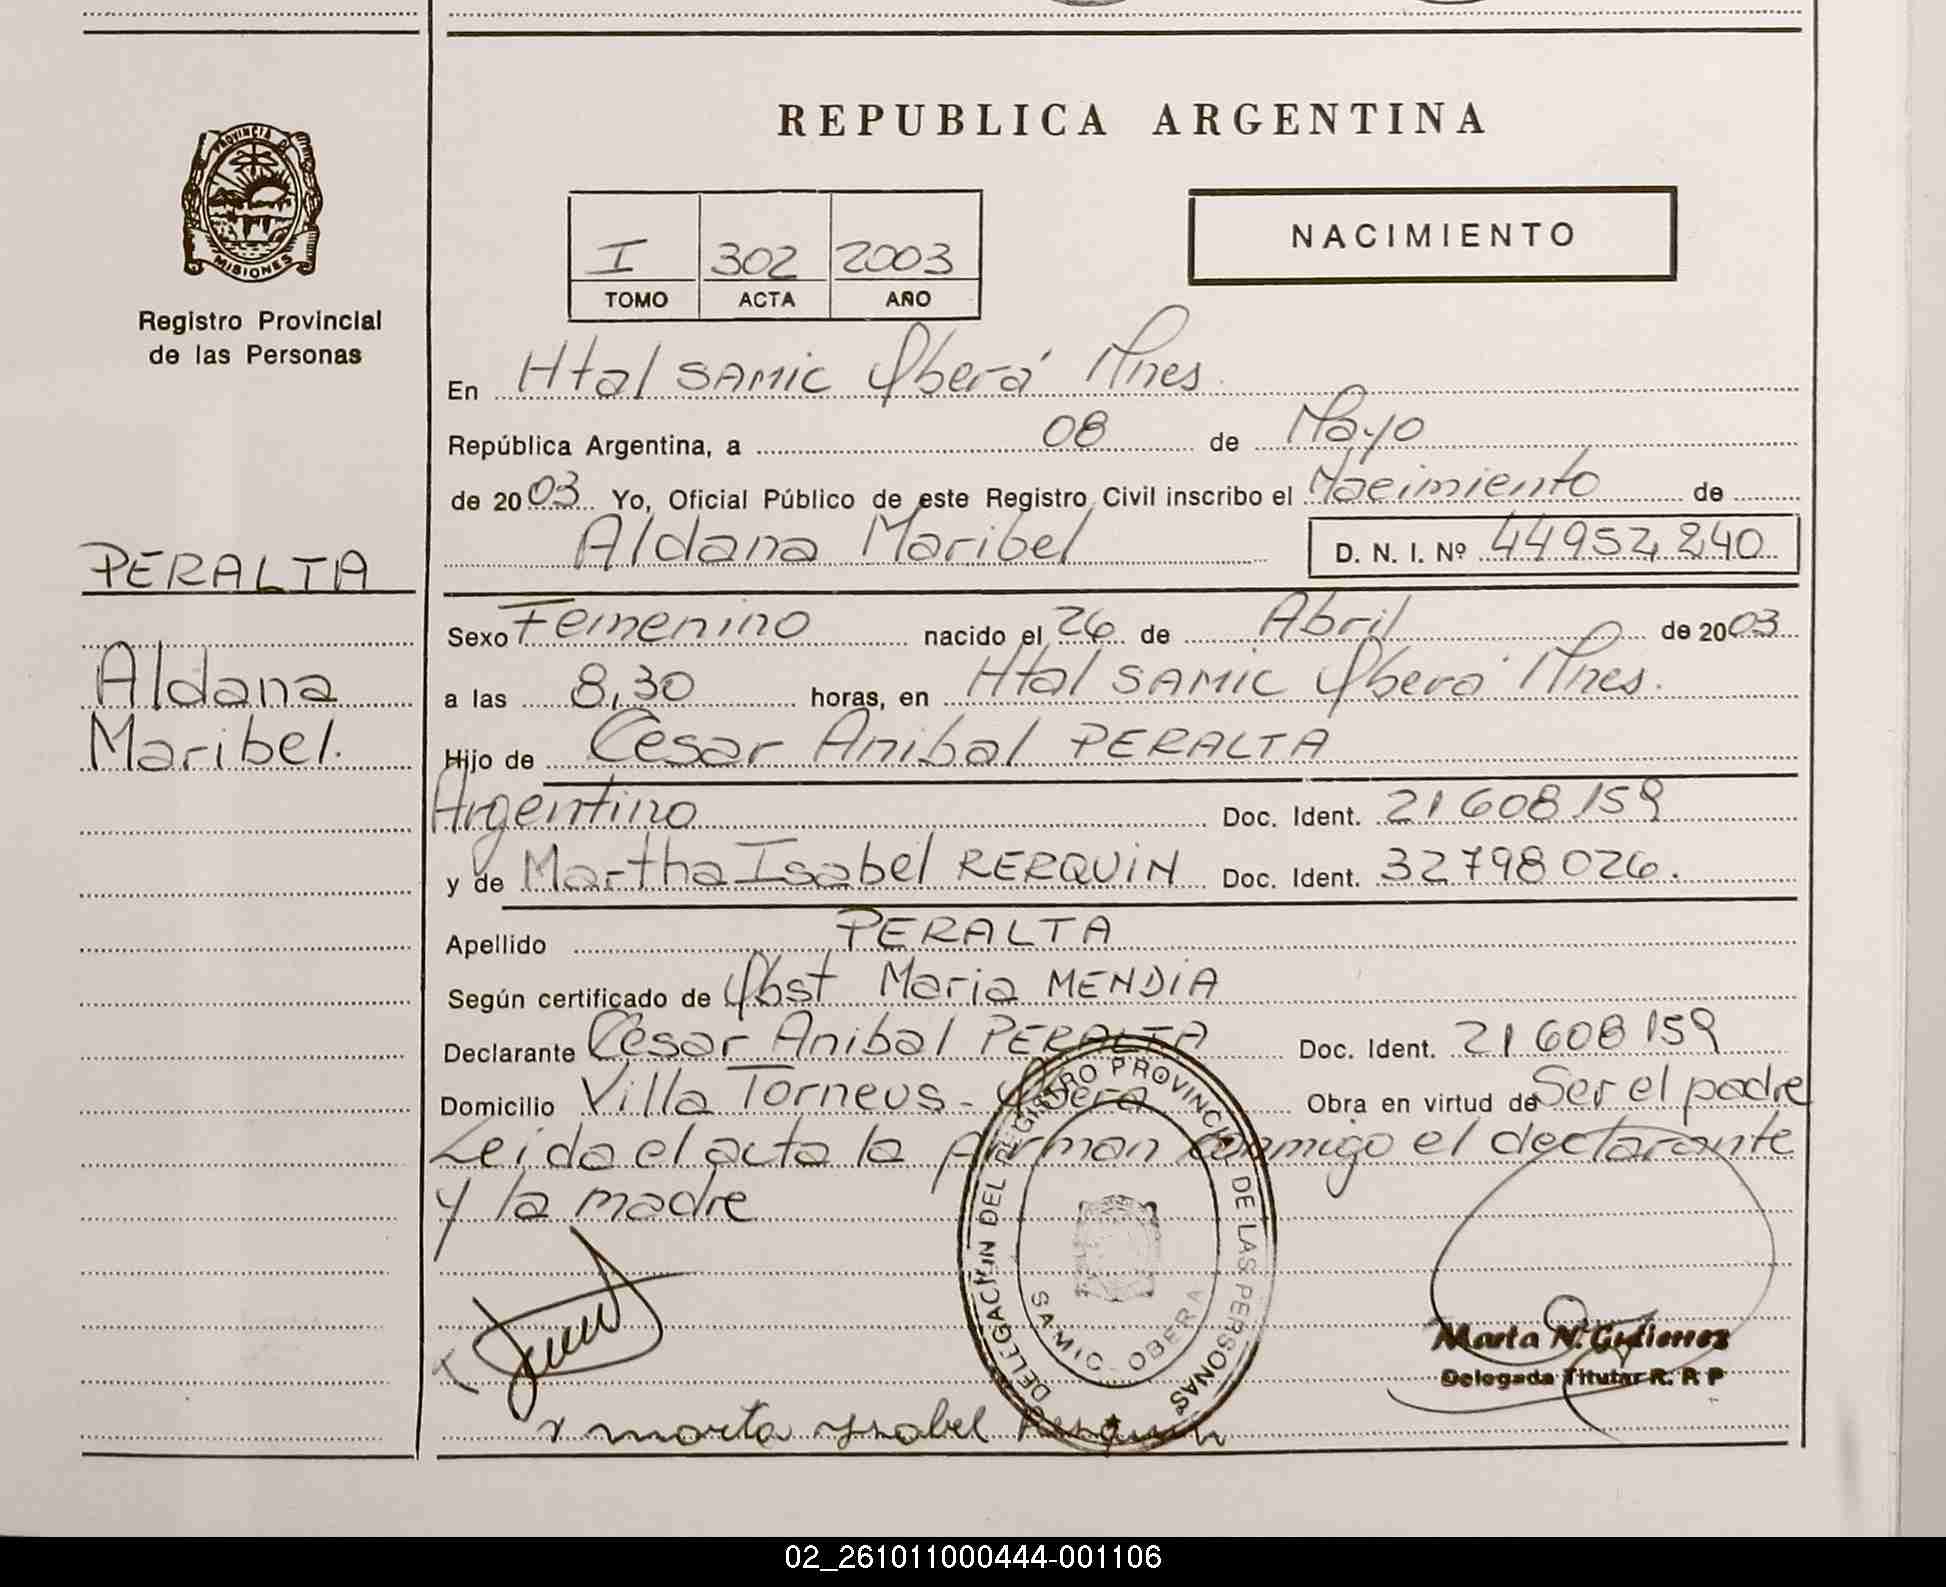 REPUBLICA ARGENTINA
PROVINCIA DE
MISIONES
Registro Provincial
de las Personas
NACIMIENTO
I 302 2003
TOMO ACTA AÑO
En Htal SAMIC Oberá Mnes.
República Argentina, a 08 de Mayo
de 2003 Yo, Oficial Público de este Registro Civil inscribo el Nacimiento de
Aldana Maribel D. N. I. Nº 44952240
PERALTA
Aldana
Maribel.
Sexo Femenino nacido el 26 de Abril de 2003
a las 8,30 horas, en Htal SAMIC Oberá Mnes.
Hijo de Cesar Anibal PERALTA
Argentino Doc. Ident. 21608159
y de Martha Isabel RERQUIN Doc. Ident. 32798026.
Apellido PERALTA
Según certificado de Obst Maria MENDIA
Declarante Cesar Anibal PERALTA Doc. Ident. 21608159
Domicilio Villa Torneus - Oberá Obra en virtud de Ser el padre
Leida el acta la firman conmigo el declarante
y la madre
DELEGACION DEL REGISTRO PROVINCIAL DE LAS PERSONAS
SAMIC OBERA
Marta N. Gutierrez
Delegada Titular R. P. P
x marta ysabel
02_261011000444-001106